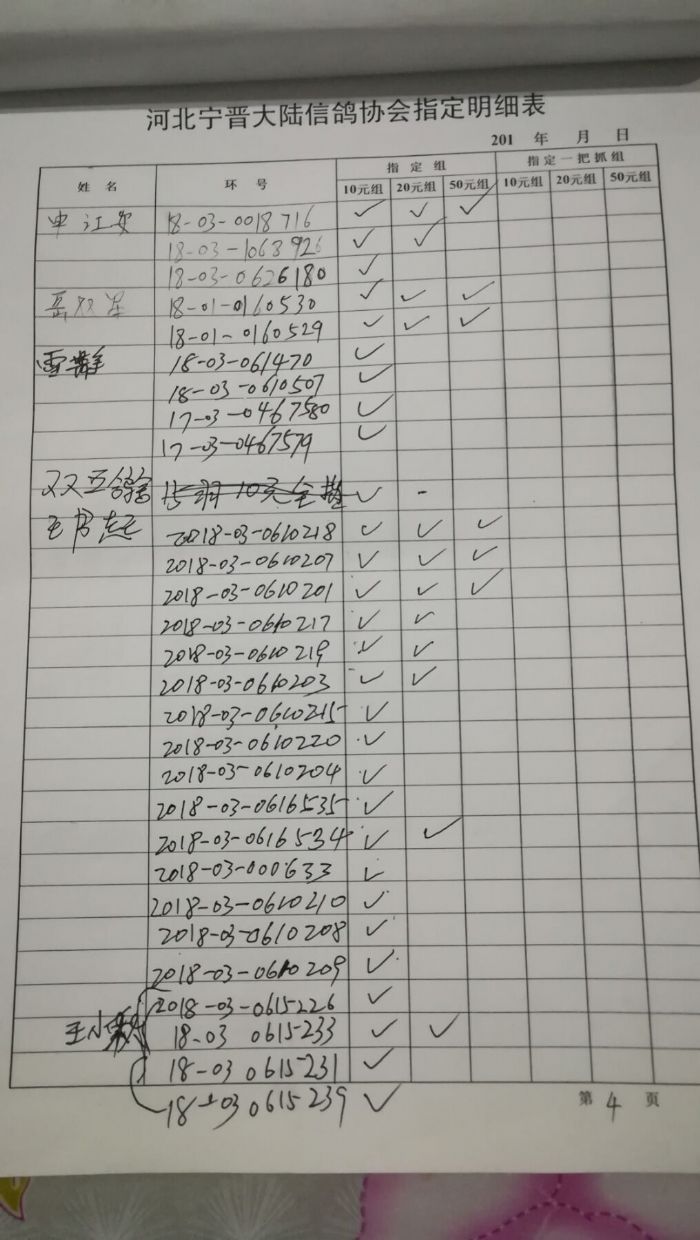 河北宁晋大陆信鸽协会指定明细表
201 年 月 日
姓 名 环 号 指 定 组 指 定 一 把 抓 组
10元组 20元组 50元组 10元组 20元组 50元组
申江安 18-03-0018716 ✓ ✓ ✓
18-03-1063926 ✓ ✓
18-03-0626180 ✓
岳双军 18-01-0160530 ✓ ✓ ✓
18-01-0160529 ✓ ✓ ✓
雪静 18-03-061470 ✓
18-03-0610507 ✓
17-03-0467580 ✓
17-03-0467579 ✓
双双五鸽舍 15羽10元全指 ✓ -
王书志 2018-03-0610218 ✓ ✓ ✓
2018-03-0610207 ✓ ✓ ✓
2018-03-0610201 ✓ ✓ ✓
2018-03-0610217 ✓ ✓
2018-03-0610219 ✓ ✓
2018-03-0610203 ✓ ✓
2018-03-0610215 ✓
2018-03-0610220 ✓
2018-03-0610204 ✓
2018-03-0616535 ✓
2018-03-0616534 ✓ ✓
2018-03-000633 ✓
2018-03-0610210 ✓
2018-03-0610208 ✓
2018-03-0610209 ✓
2018-03-0615226 ✓
王小 18-03 0615233 ✓ ✓
18-03 0615231 ✓
18-03 0615239 ✓
第 4 页